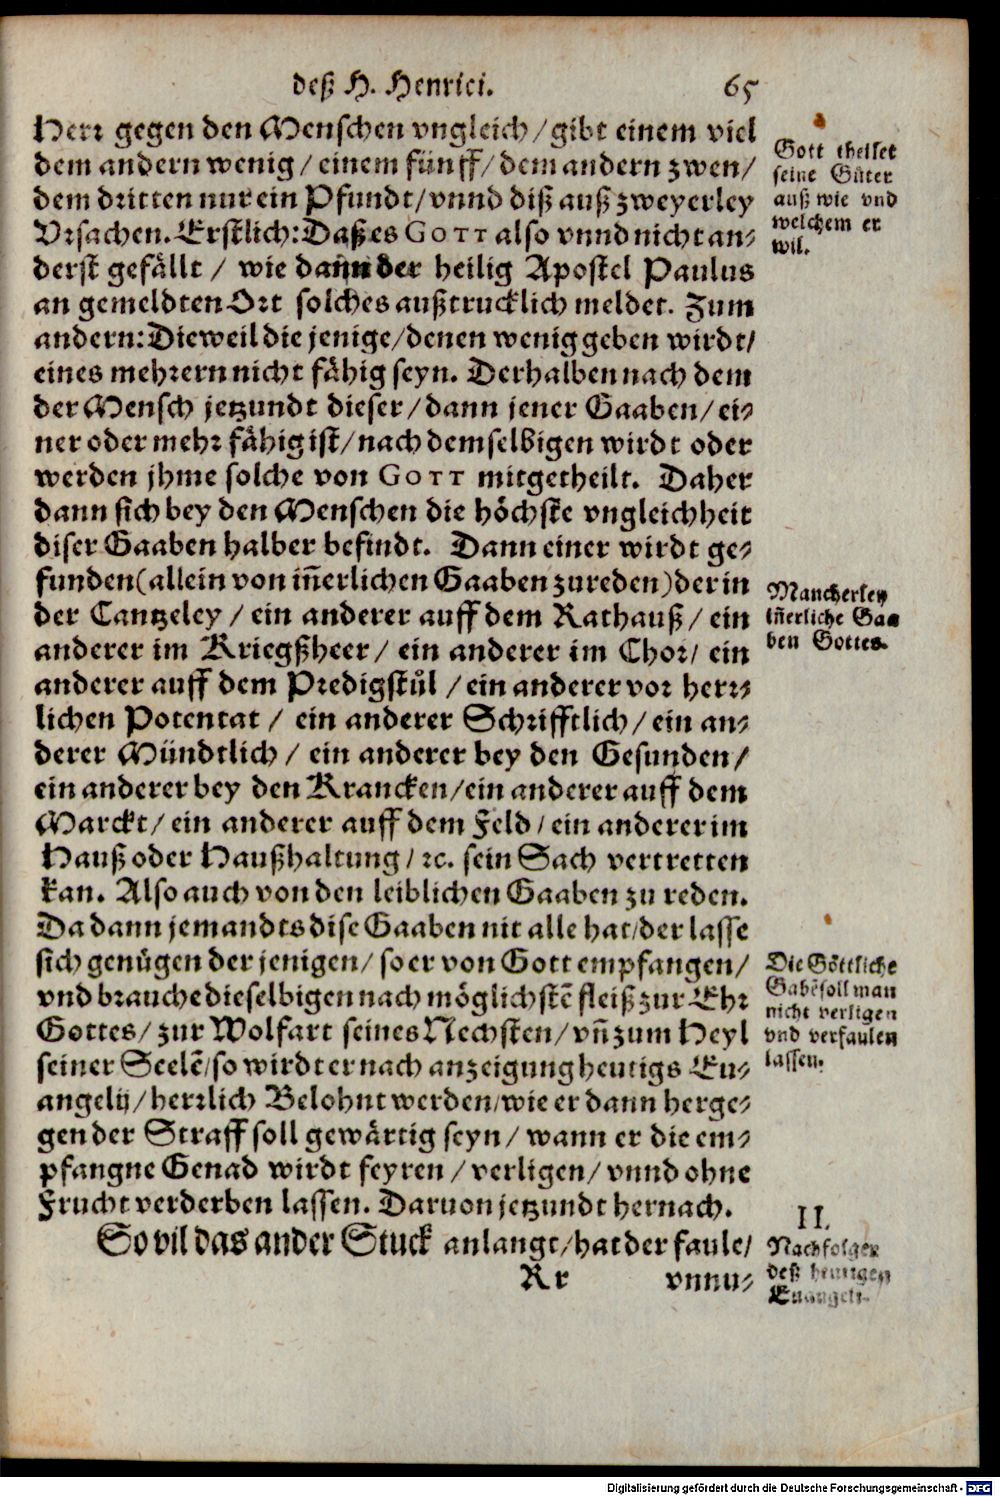 deß H. Henrici. 65
Herr gegen den Menschen vngleich/gibt einem viel
dem andern wenig/einem fünff/dem andern zwen/
dem dritten nur ein Pfundt/vnnd diß auß zweyerley
Vrsachen. Erstlich: Daß es GOTT also vnnd nicht an-
derst gefällt/ wie dann der heilig Apostel Paulus
an gemeldten Ort solches außtrucklich meldet. Zum
andern: Dieweil die jenige/denen wenig geben wirdt/
eines mehrern nicht fähig seyn. Derhalben nach dem
der Mensch jetzundt dieser/dann jener Gaaben/ei-
ner oder mehr fähig ist/nach demselbigen wirdt oder
werden jhme solche von GOTT mitgetheilt. Daher
dann sich bey den Menschen die höchste vngleichheit
diser Gaaben halber befindt. Dann einer wirdt ge-
funden(allein von iñerlichen Gaaben zureden)der in
der Cantzeley/ ein anderer auff dem Rathauß/ ein
anderer im Kriegßheer/ ein anderer im Chor/ ein
anderer auff dem Predigstůl/ein anderer vor herr-
lichen Potentat/ ein anderer Schrifftlich/ein an-
derer Mündtlich/ ein anderer bey den Gesunden/
ein anderer bey den Krancken/ein anderer auff dem
Marckt/ein anderer auff dem Feld/ein anderer im
Hauß oder Haußhaltung/ꝛc. sein Sach vertretten
kan. Also auch von den leiblichen Gaaben zu reden.
Da dann jemandts dise Gaaben nit alle hat/der lasse
sich genügen der jenigen/so er von Gott empfangen/
vnd brauche dieselbigen nach möglichstē fleiß zur Ehr
Gottes/zur Wolfart seines Nechsten/vñ zum Heyl
seiner Seelē/so wirdt er nach anzeigung heutigs Eu-
angelij/herrlich Belohnt werden/wie er dann herge-
gen der Straff soll gewärtig seyn/ wann er die em-
pfangne Genad wirdt feyren/verligen/vnnd ohne
Frucht verderben lassen. Daruon jetzundt hernach.
So vil das ander Stuck anlangt/hat der faule/
Rr vnnu-
Gott theilet
seine Güter
auß wie vnd
welchem er
wil.
Mancherley
iñerliche Gaa
ben Gottes.
Die Göttliche
Gabē soll man
nicht verligen
vnd verfaulen
lassen.
II.
Nachfolger
deß heutigen
Euangeli-
Digitalisierung gefördert durch die Deutsche Forschungsgemeinschaft - DFG